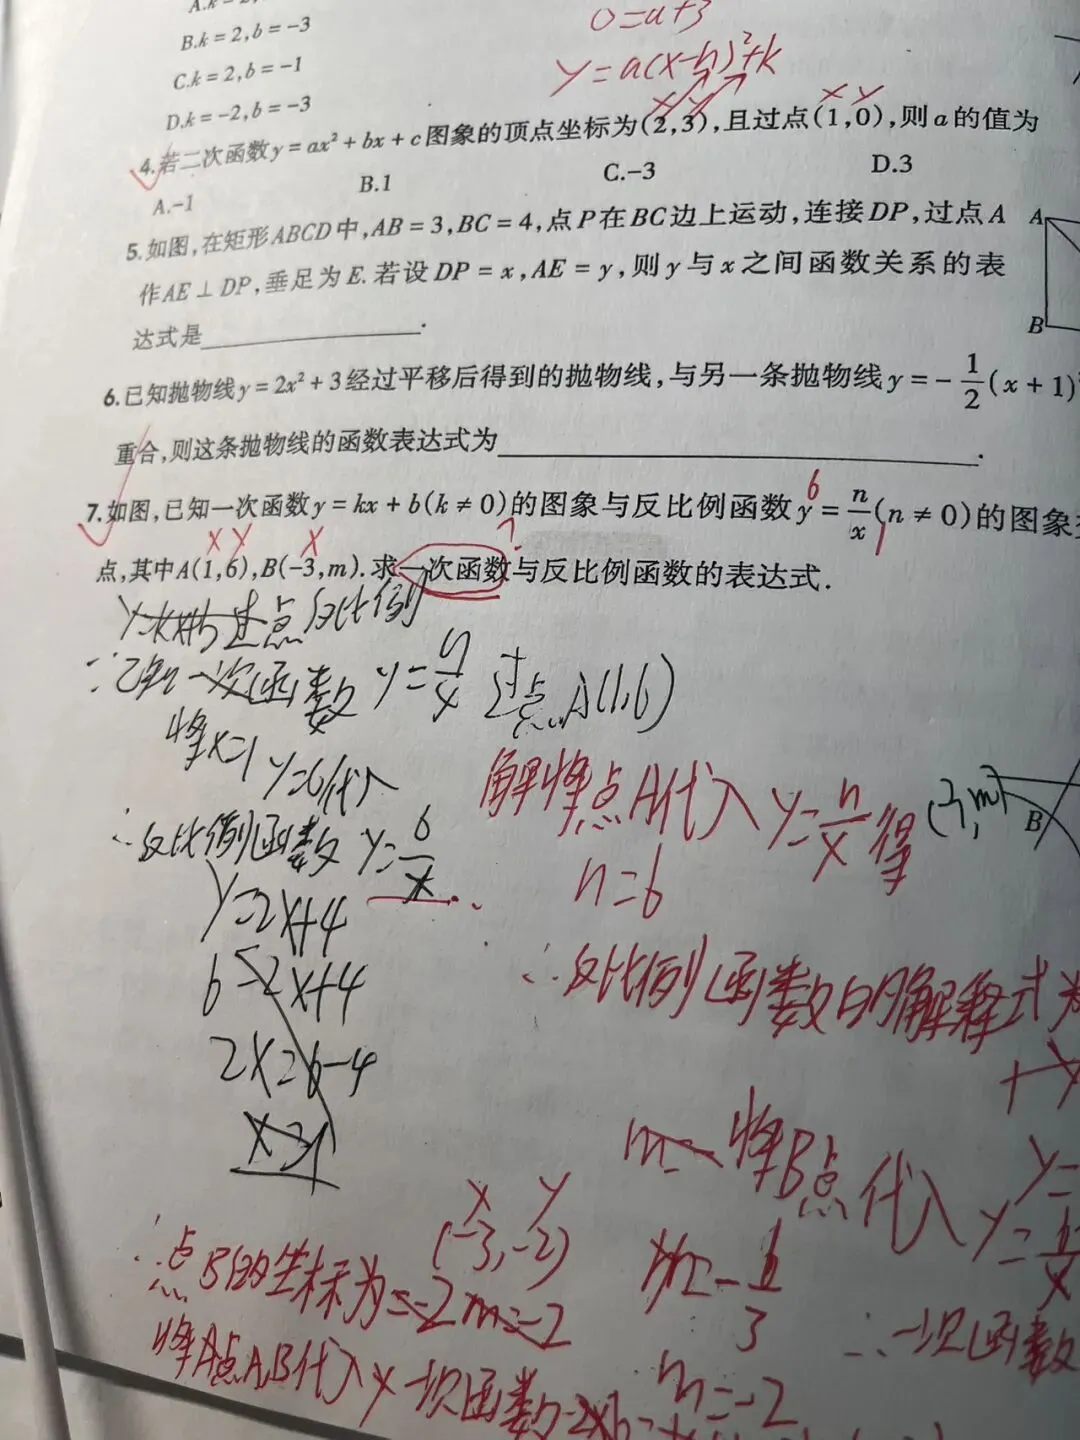 B.k = 2, b = −3
0=a+3
C.k = 2, b = −1
y=a(x-h)²+k
D.k = −2, b = −3
x y x y
4.若二次函数y = ax² + bx + c图象的顶点坐标为(2,3),且过点(1,0),则a的值为
A.−1 B.1 C.−3 D.3
5.如图,在矩形ABCD中,AB = 3,BC = 4,点P在BC边上运动,连接DP,过点A
作AE ⊥ DP,垂足为E.若设DP = x,AE = y,则y与x之间函数关系的表
达式是
A
B
6.已知抛物线y = 2x² + 3经过平移后得到的抛物线,与另一条抛物线y = − 1/2 (x + 1)
重合,则这条抛物线的函数表达式为
7.如图,已知一次函数y = kx + b(k ≠ 0)的图象与反比例函数y = n/x (n ≠ 0)的图象
6
1
x y x ?
点,其中A(1,6),B(−3,m).求一次函数与反比例函数的表达式.
y=kx+b过点反比例
∵已知一次函数 y=n/x 过点A(1,6)
将x=1 y=6代入
∴反比例函数 y=6/x
y=2x+4
6=2x+4
2x=6-4
x=1
解将点A代入 y=n/x 得
n=6
B
∴反比例函数的解释式为
m= 将B点代入 y=6/x
y=
x y
(-3,-2)
∴点B的坐标为=-2 m=-2
m=-6/3
m=-2
∴一次函数
将A点A,B代入y一次函数